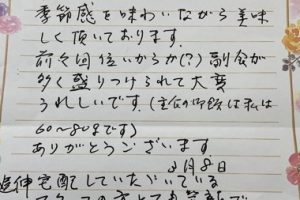 季節感を味わいながら美味
しく頂いております。
前々回位いからか(?)副食が
多く盛りつけられて大変
うれしいです。(主食の御飯は私は
60〜80gです)
ありがとうございます
3月8日
追伸 宅配していただいている